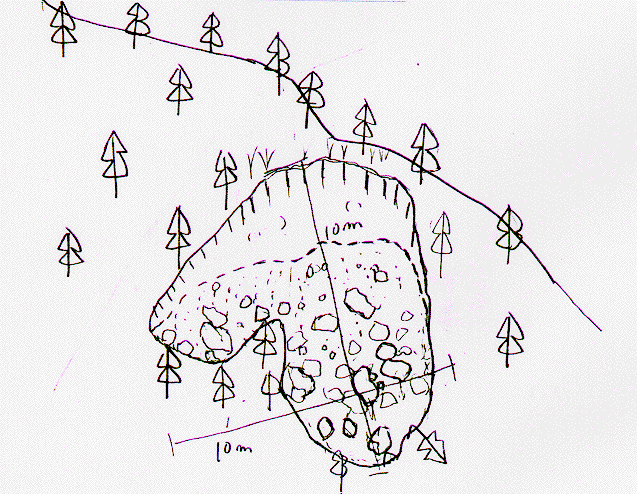 10m
10m